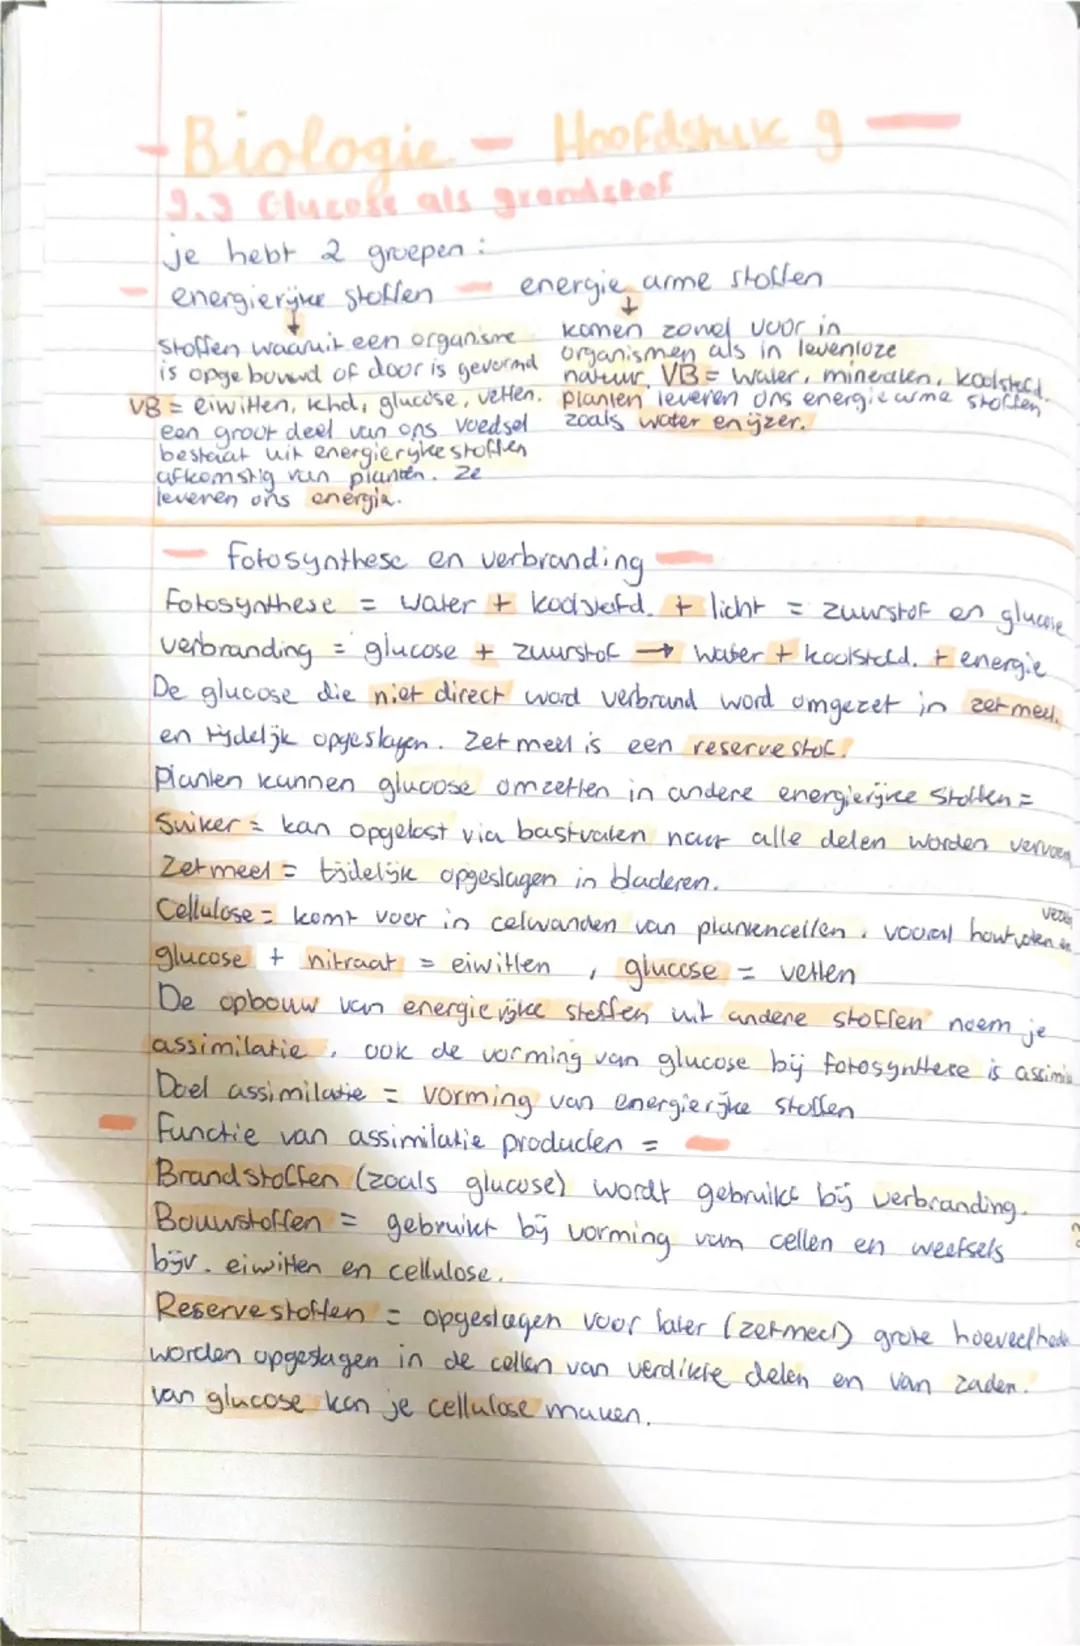 - Biologie - Hoofdstuk 9 -
9.3 Glucose als grondstof
je hebt 2 groepen:
- energierijke stoffen - energie arme stoffen
↓
stoffen waaruit een organisme
is opgebouwd of door is gevormd
VB = eiwitten, khd, glucose, vetten.
een groot deel van ons voedsel
bestaat uit energierijke stoffen
afkomstig van planten. Ze
leveren ons energie.
↓
komen zowel voor in
organismen als in levenloze
natuur. VB = water, mineralen, koolstofd.
planten leveren ons energie arme stoffen
zoals water en ijzer.
- fotosynthese en verbranding -
Fotosynthese = water + koolstofd. + licht = zuurstof en glucose
verbranding = glucose + zuurstof → water + koolstofd. + energie
De glucose die niet direct word verbrand word omgezet in zetmeel.
en tijdelijk opgeslagen. Zetmeel is een reservestof!
Planten kunnen glucose omzetten in andere energierijke stoffen =
Suiker = kan opgelost via bastvaten naar alle delen worden vervoerd
Zetmeel = tijdelijk opgeslagen in bladeren.
Cellulose = komt voor in celwanden van plantencellen. vooral houtvaten en
glucose + nitraat = eiwitten, glucose = vetten
De opbouw van energierijke stoffen uit andere stoffen noem je
assimilatie, ook de vorming van glucose bij fotosynthese is assimila
Doel assimilatie = vorming van energierijke stoffen
- Functie van assimilatie producten = -
Brandstoffen (zoals glucose) wordt gebruikt bij verbranding.
Bouwstoffen = gebruikt bij vorming van cellen en weefsels
bijv. eiwitten en cellulose.
Reservestoffen = opgeslagen voor later (zetmeel) grote hoeveelhede
worden opgeslagen in de cellen van verdikte delen en van zaden.
van glucose kan je cellulose maken.